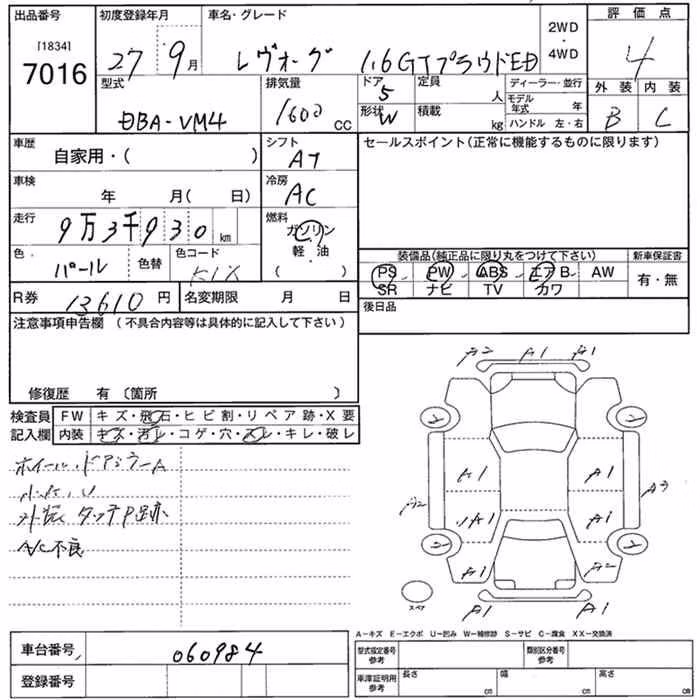 出品番号 初度登録年月 車名・グレード 評価点
[1834]
7016
27 9月 レヴォーグ 1.6GTプラウドED
2WD
・
4WD
4
型式 排気量 ドア 定員 ディーラー・並行 外装 内装
DBA-VM4 1600 CC 5 人 モデル年式 年
形状 W 積載 kg ハンドル 左・右 B C
車歴 自家用・( ) シフト AT セールスポイント(正常に機能するものに限ります)
車検 年 月( 日) 冷房 AC
走行 9万3千930km 燃料 ガソリン
軽・油
( )
色 パール 色替 色コード K1X 装備品(純正品に限り丸をつけて下さい) 新車保証書
PS PW ABS エアB AW 有・無
SR ナビ TV カワ
R券 13610円 名変期限 月 日 後日品
注意事項申告欄 (不具合内容等は具体的に記入して下さい)
修復歴 有 〔箇所 〕
検査員 FW キズ・飛石・ヒビ割・リペア跡・X要
記入欄 内装 キズ・汚レ・コゲ・穴・スレ・キレ・破レ
ホイール、ドアミラーA
小キズ、U
外板 タッチP足跡
A/C不良
A2 A1 A1
A1 A1
A2 A3
A1 A1
A1 A2
スペア A1 A1
A-キズ E-エクボ U-凹み W-補修跡 S-サビ C-腐食 XX-交換済
車台番号 060984 型式指定番号 参考 類別区分番号 参考
登録番号 車庫証明用 参考 長さ cm 幅 cm 高さ cm